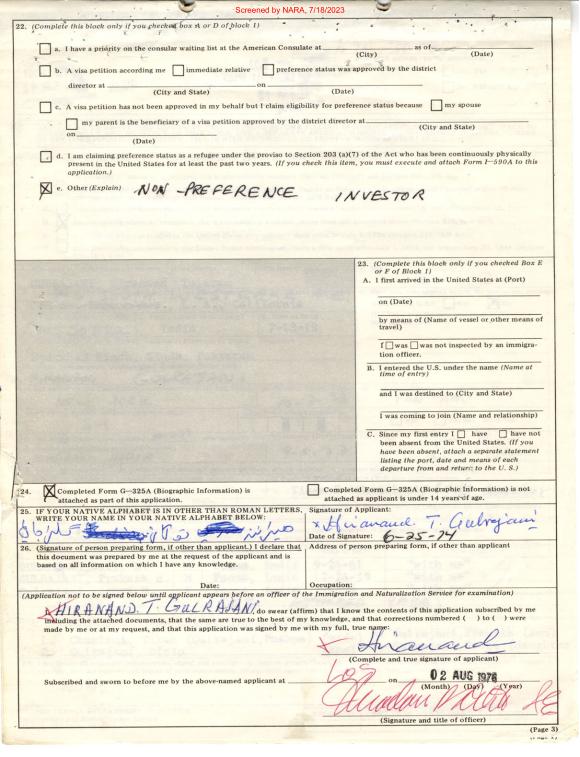 Screened by NARA, 7/18/2023
22. (Complete this block only if you checked box A or D of block 1)
a. I have a priority on the consular waiting list at the American Consulate at as of
(City) (Date)
b. A visa petition according me immediate relative preference status was approved by the district
director at on
(City and State) (Date)
c. A visa petition has not been approved in my behalf but I claim eligibility for preference status because my spouse
my parent is the beneficiary of a visa petition approved by the district director at
(City and State)
on
(Date)
d. I am claiming preference status as a refugee under the proviso to Section 203 (a)(7) of the Act who has been continuously physically
present in the United States for at least the past two years. (If you check this item, you must execute and attach Form I-590A to this
application.)
X e. Other (Explain) NON-PREFERENCE INVESTOR
23. (Complete this block only if you checked Box E
or F of Block 1)
A. I first arrived in the United States at (Port)
on (Date)
by means of (Name of vessel or other means of
travel)
I was was not inspected by an immigra-
tion officer.
B. I entered the U.S. under the name (Name at
time of entry)
and I was destined to (City and State)
I was coming to join (Name and relationship)
C. Since my first entry I have have not
been absent from the United States. (If you
have been absent, attach a separate statement
listing the port, date and means of each
departure from and return to the U. S.)
24. X Completed Form G-325A (Biographic Information) is
attached as part of this application.
Completed Form G-325A (Biographic Information) is not
attached as applicant is under 14 years of age.
25. IF YOUR NATIVE ALPHABET IS IN OTHER THAN ROMAN LETTERS,
WRITE YOUR NAME IN YOUR NATIVE ALPHABET BELOW:
Signature of Applicant:
x Hiranand T. Gulrajani
Date of Signature: 6-25-74
26. (Signature of person preparing form, if other than applicant.) I declare that
this document was prepared by me at the request of the applicant and is
based on all information which I have any knowledge.
Date:
Address of person preparing form, if other than applicant
Occupation:
(Application not to be signed below until applicant appears before an officer of the Immigration and Naturalization Service for examination)
I, HIRANAND. T. GULRAJANI do swear (affirm) that I know the contents of this application subscribed by me
including the attached documents, that the same are true to the best of my knowledge, and that corrections numbered ( ) to ( ) were
made by me or at my request, and that this application was signed by me with my full, true name:
x Hiranand
(Complete and true signature of applicant)
Subscribed and sworn to before me by the above-named applicant at LOS on 02 AUG 1976
(Month) (Day) (Year)
(Signature and title of officer)
(Page 3)